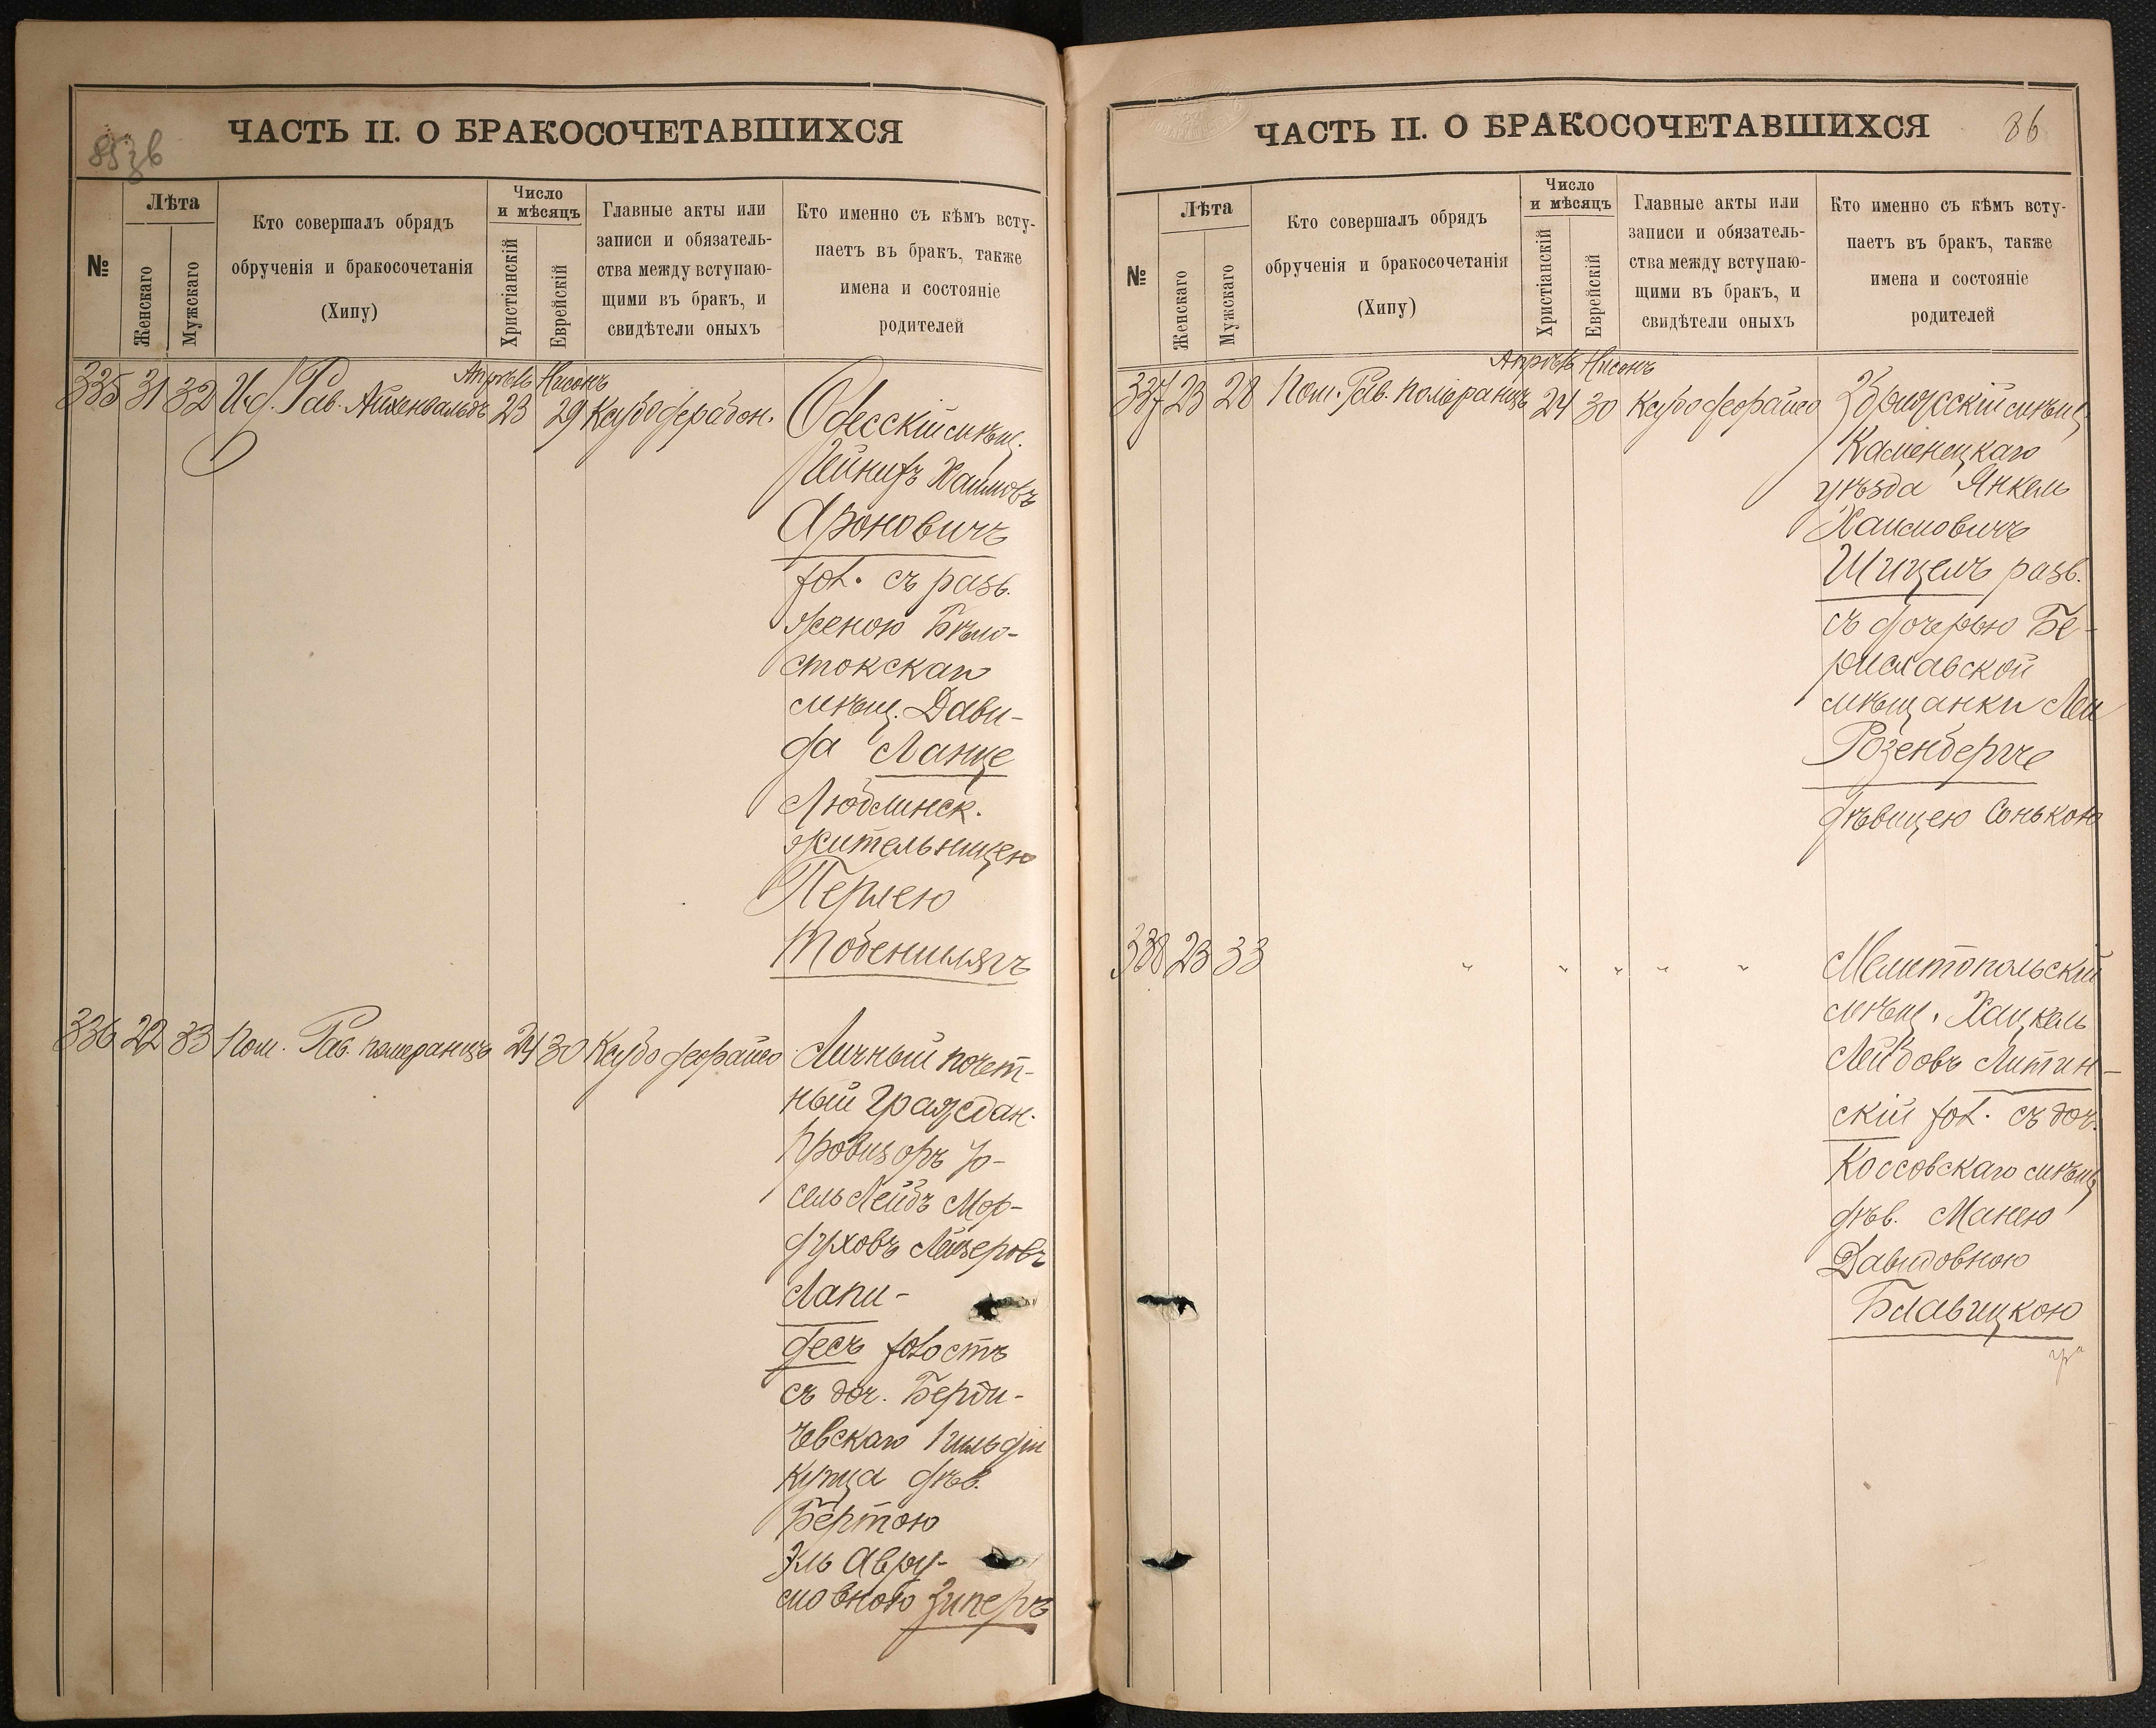 85зв
ЧАСТЬ II. О БРАКОСОЧЕТАВШИХСЯ
№
Лѣта
Женскаго
Мужскаго
Кто совершалъ обрядъ
обрученія и бракосочетанія
(Хипу)
Число
и мѣсяцъ
Христіанскій
Еврейскій
Главные акты или
записи и обязатель-
ства между вступаю-
щими въ бракъ, и
свидѣтели оныхъ
Кто именно съ кѣмъ всту-
паетъ въ бракъ, также
имена и состояніе
родителей
Апрѣль Нисонъ
335 31 32 И.д. Рав. Айхенвальдъ 23 29
Одесскій мѣщ.
Хаимовъ
Ароновичъ
хол. съ разв.
женою Бѣло-
стокскаго
мѣщ. Дави-
да Ланце
Люблинск.
жительницею
Перлею
336 22 33 Пом. Рав. Померанцъ 24 30
Личный почет-
ный граждан.
провизоръ Іо-
сель Лейбъ Мор-
духовъ Лейзеровъ
Лапи-
десъ холостъ
съ доч. Берди-
чевскаго 1 гильдіи
купца дѣв.
Бертою
Авру-
мовною Зиперъ
ЧАСТЬ II. О БРАКОСОЧЕТАВШИХСЯ
86
№
Лѣта
Женскаго
Мужскаго
Кто совершалъ обрядъ
обрученія и бракосочетанія
(Хипу)
Число
и мѣсяцъ
Христіанскій
Еврейскій
Главные акты или
записи и обязатель-
ства между вступаю-
щими въ бракъ, и
свидѣтели оныхъ
Кто именно съ кѣмъ всту-
паетъ въ бракъ, также
имена и состояніе
родителей
Апрѣль Нисонъ
337 23 28 Пом. Рав. Померанцъ 24 30
мѣщ.
Каменецкаго
уѣзда Янкель
Хаимовичъ
Шицель разв.
съ дочерью Бе-
риславской
мѣщанки Леи
Розенбергъ
дѣвицею Сонькою
338 23 33 " " " " "
Мелитопольскій
мѣщ. Хацкель
Лейбовъ Литин-
скій хол. съ доч.
Коссовскаго мѣщ
дѣв. Манею
Давидовною
Блавицкою